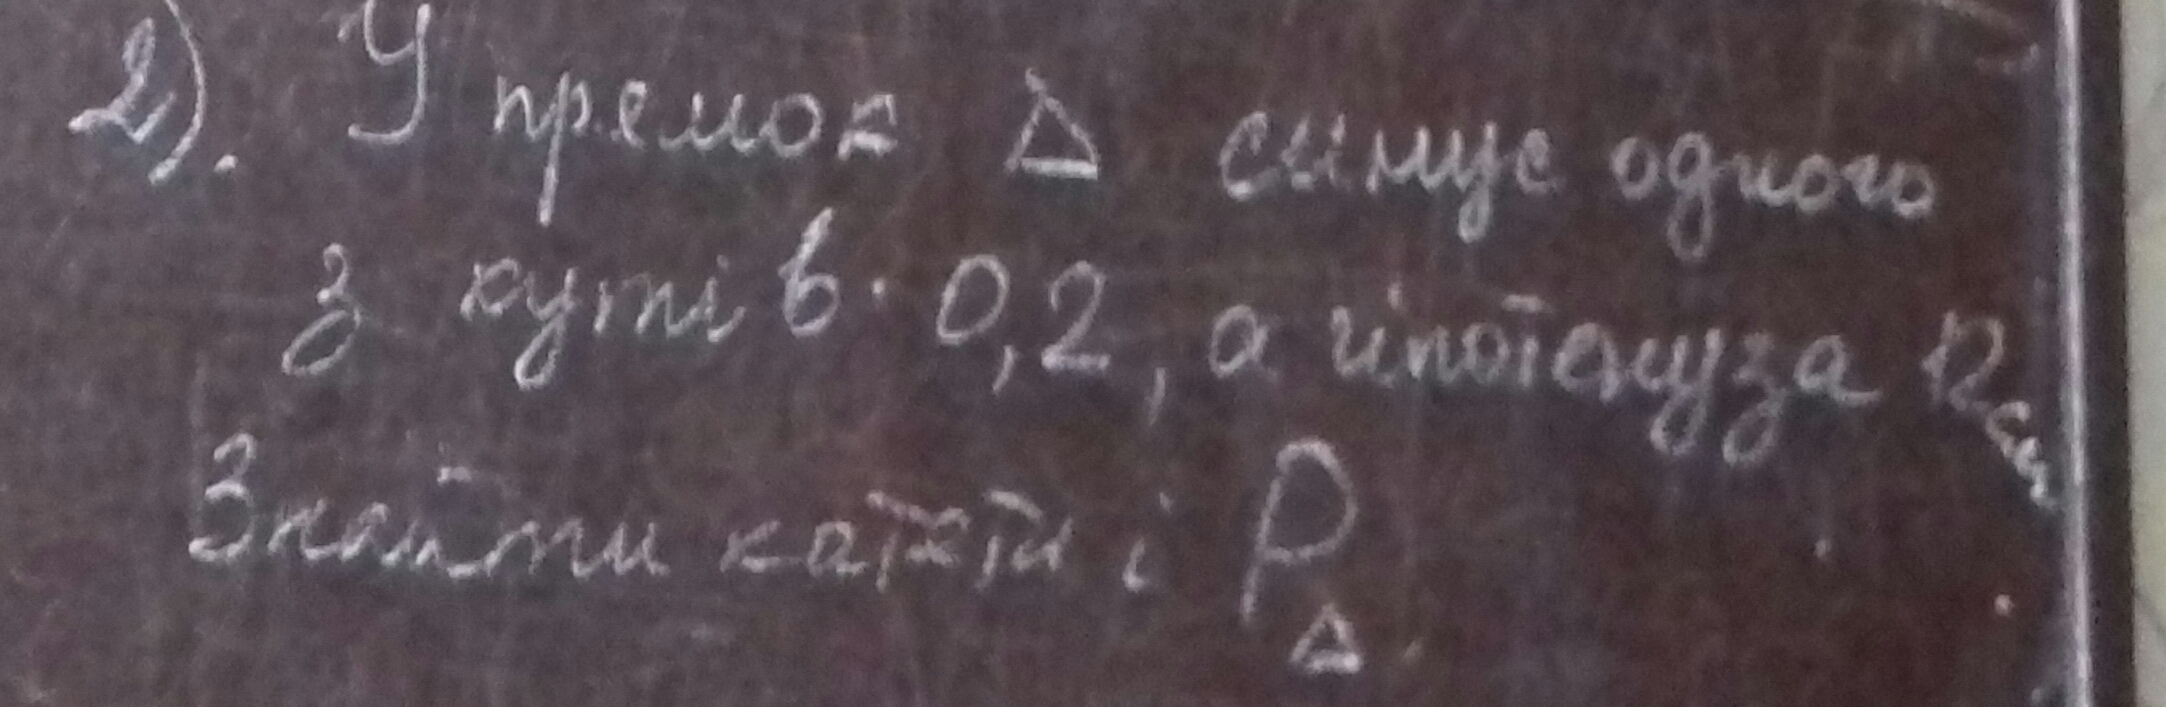 2). У прямок Δ синус одного
з кутів 0,2, а гіпотенуза 12 см
Знайти катети і P Δ